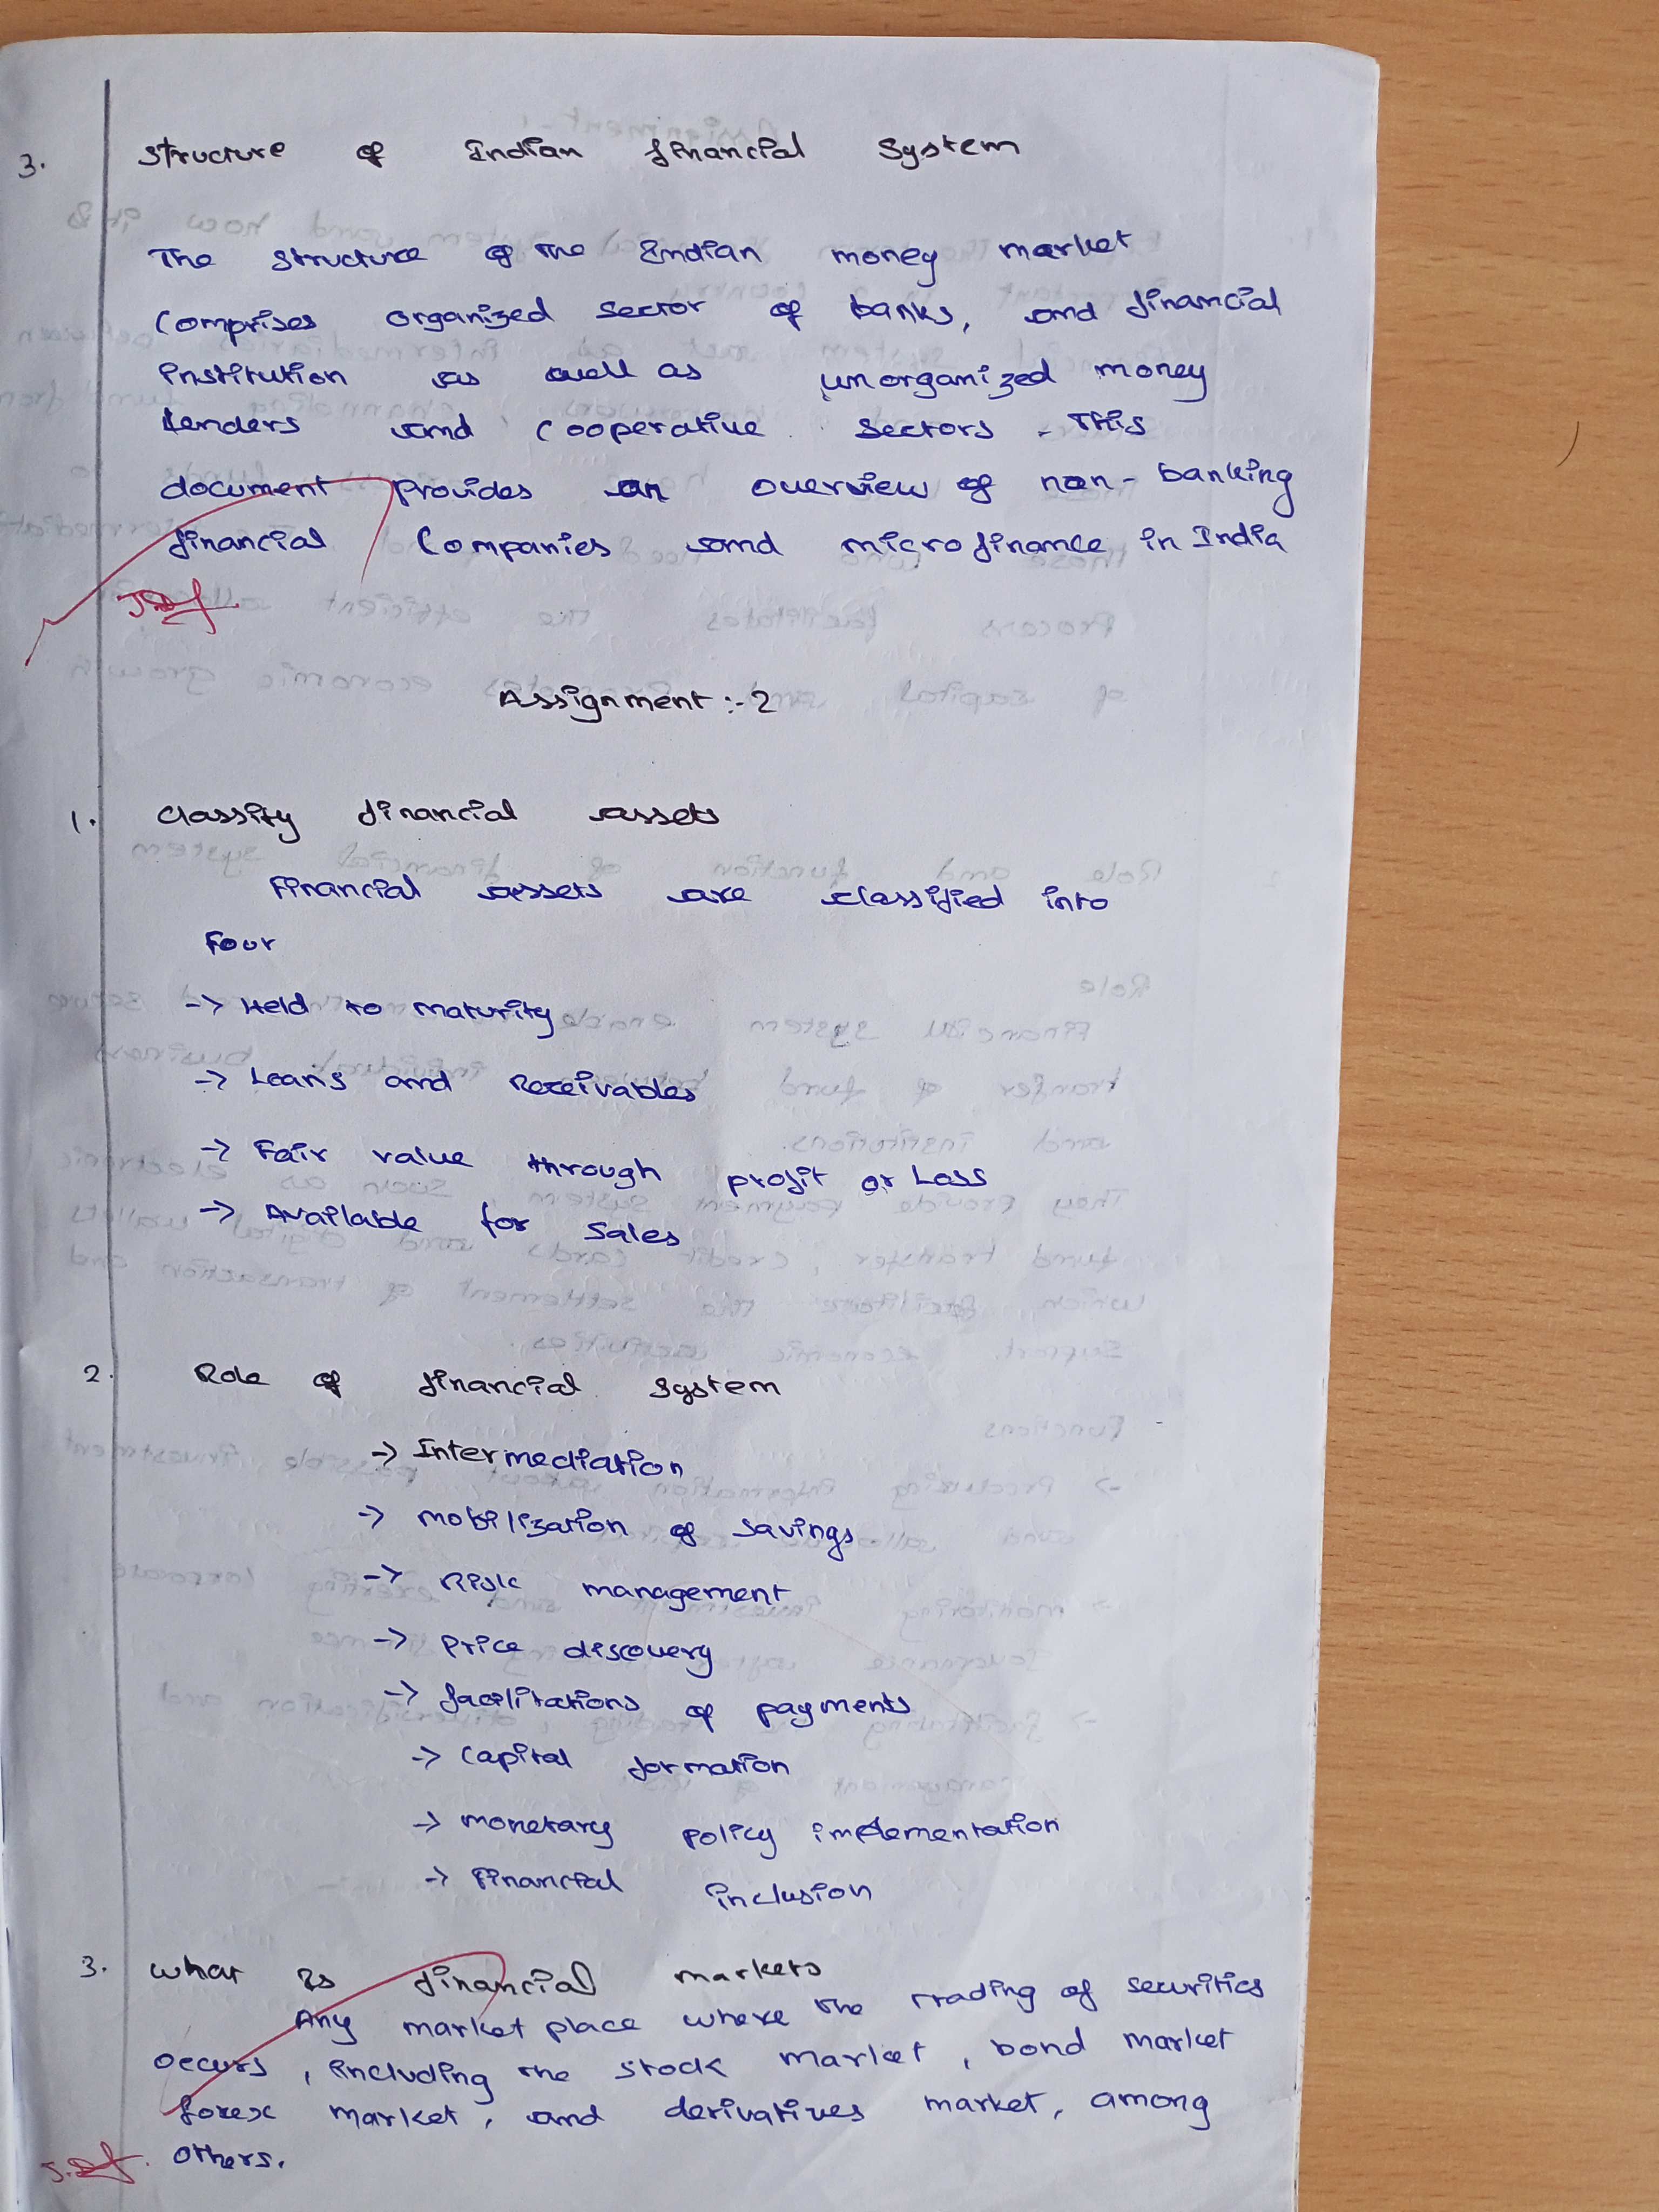 3. Structure of Indian financial System
The structure of the Indian money market
Comprises organized sector of banks, and financial
institution as well as unorganized money
lenders and cooperative sectors. This
document provides an overview of non-banking
financial Companies and microfinance in India
Assignment :- 2
1. Classify financial assets
Financial assets are classified into
Four
-> Held to maturity
-> Loans and Receivables
-> Fair value through profit or Loss
-> Available for Sales
2. Role of financial System
-> Intermediation
-> Mobilization of Savings
-> Risk management
-> Price discovery
-> facilitations of payments
-> Capital formation
-> Monetary policy implementation
-> Financial inclusion
3. What is financial markets
Any market place where the trading of securities
occurs, including the stock market, bond market
forex market, and derivatives market, among
others.